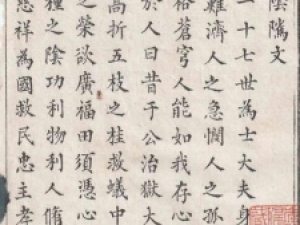 陰隲文
一十七世為士大夫身
難濟人之急憫人之孤
格蒼穹人能如我存心
於人曰昔于公治獄大
高折五枝之桂救蟻中
之榮欲廣福田須憑心
種之陰功利物利人脩
慈祥為國救民忠主孝